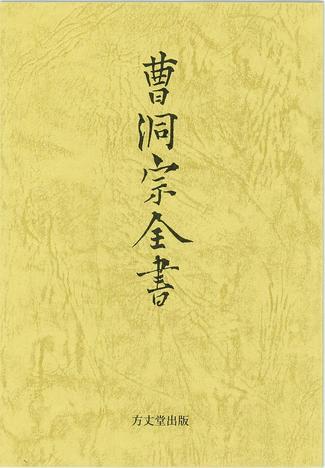 曹洞宗全書
方丈堂出版